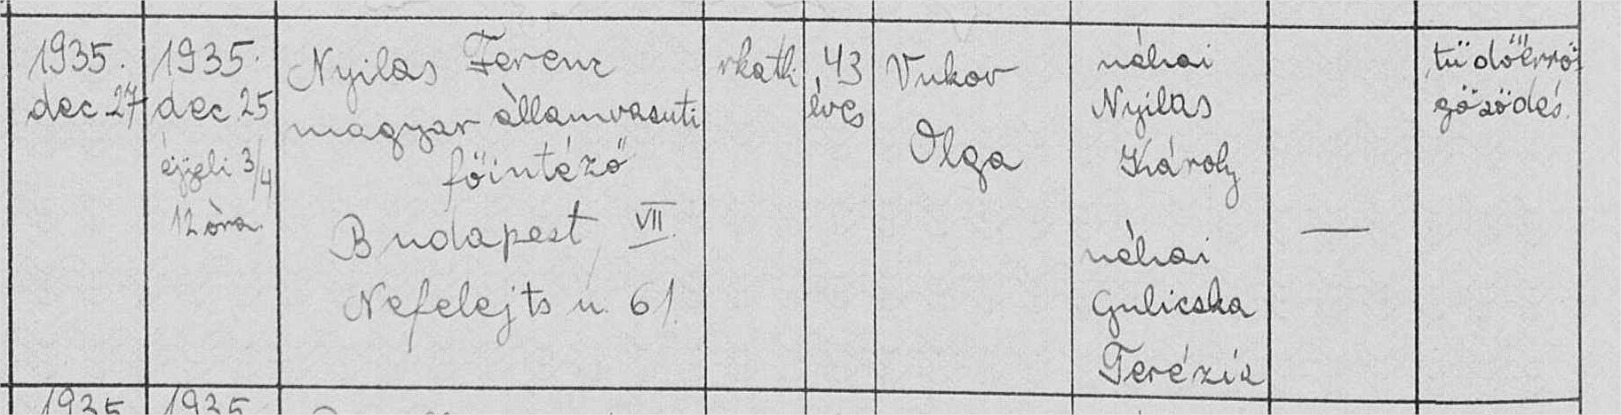 1935.
dec 27
1935.
dec 25
éjjeli 3/4
12 óra.
Nyilas Ferenc
magyar államvasuti
főintéző
Budapest VII.
Nefelejts u. 61.
rkath.
43
éves
Vukov
Olga
néhai
Nyilas
Károly
néhai
Gulicska
Terézia
—
tüdőérrö
gösödés.
1935
1935